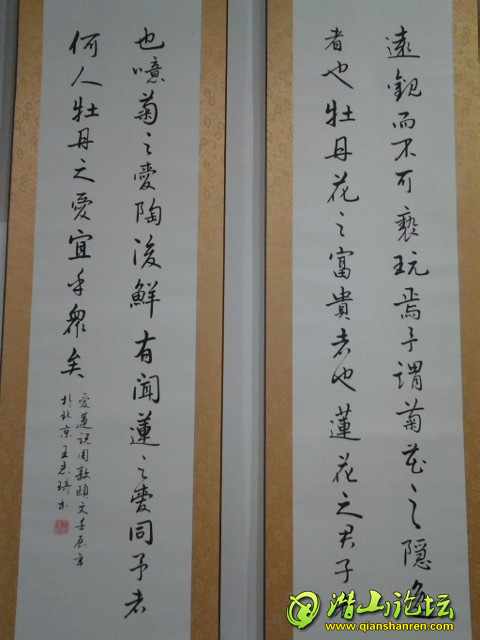 遠觀而不可褻玩焉予謂菊花之隱逸
者也牡丹花之富貴者也蓮花之君子者
也噫菊之愛陶後鮮有聞蓮之愛同予者
何人牡丹之愛宜乎衆矣
愛蓮説周敦頤文壬辰
於北京王
潜山论坛
www.qianshanren.com